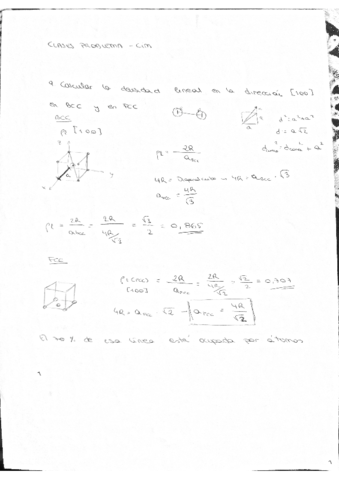 CLASES PROBLEMAS - CIM
1 Calcular la densidad lineal en la dirección [100]
en BCC y en FCC
BCC
ρl [100]
d² = a² + a²
d = a√2
a
z
y
x
ρl = 2R / aBCC
4R = a BCC · √3
aBCC = 4R / √3
ρl = 2R / aBCC = 2R / (4R/√3) = √3 / 2 = 0,8665
FCC
ρl (FCC) [100] = 2R / aFCC = 2R / (4R/√2) = √2 / 2 = 0,707
4R = aFCC · √2 → aFCC = 4R / √2
El 70 % de esa línea está ocupada por átomos